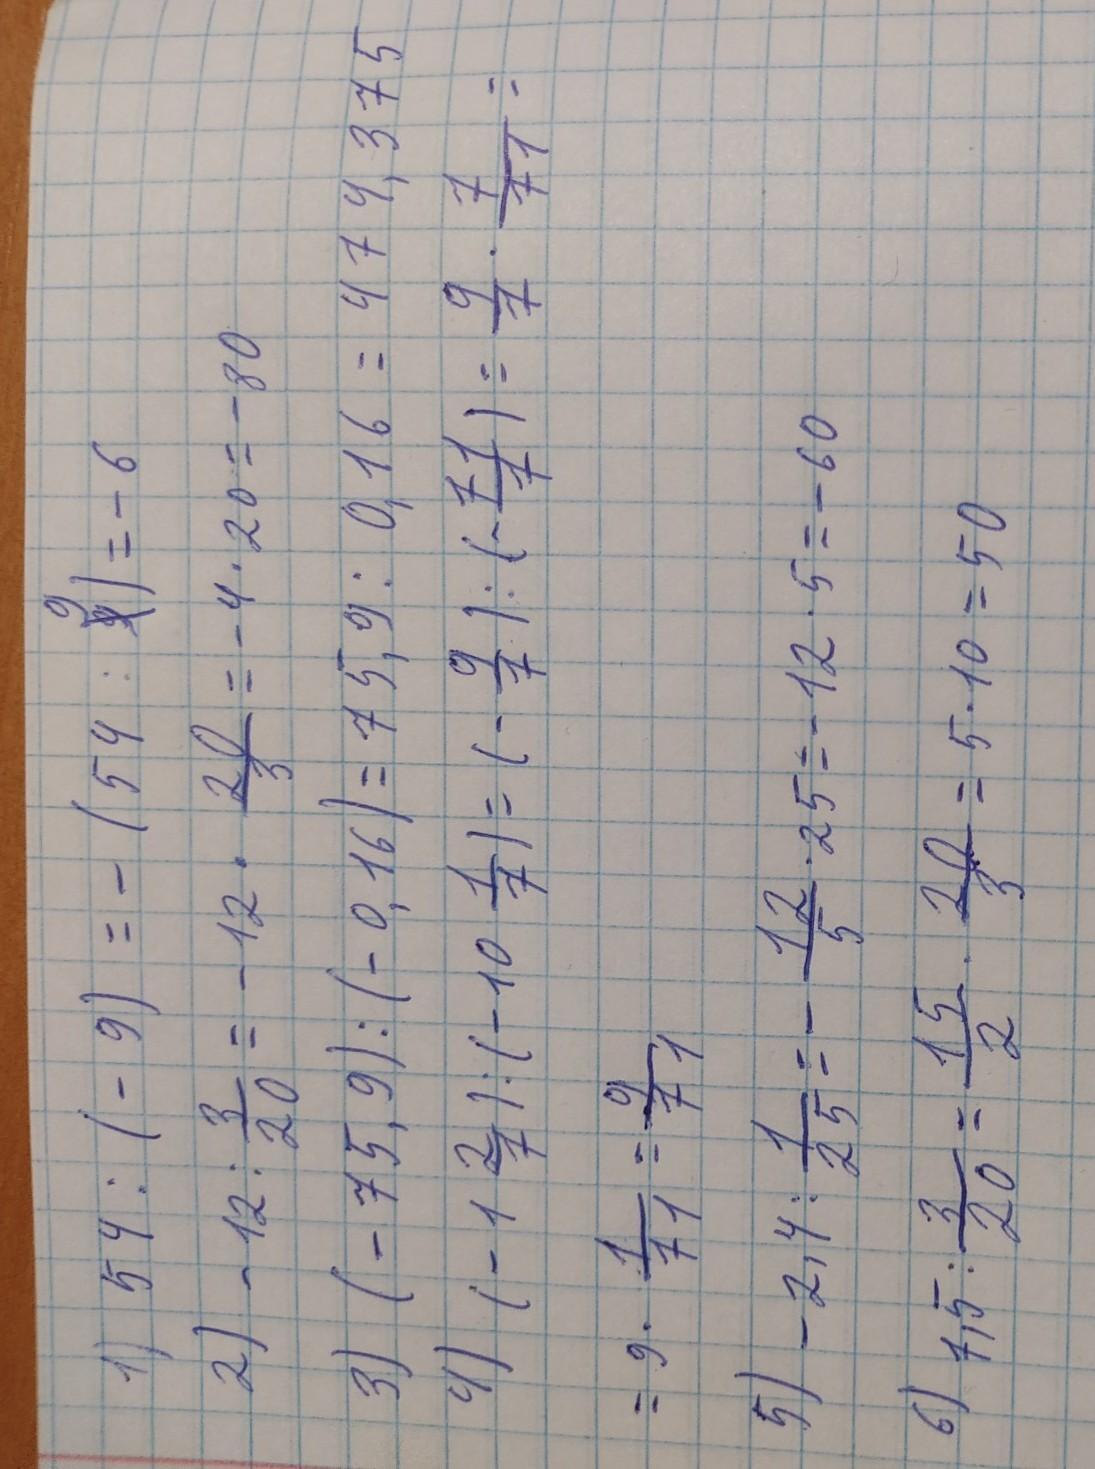 1) 54 : (-9) = -(54 : 9) = -6
2) -12 : 3/20 = -12 · 20/3 = -4 · 20 = -80
3) (-75,9) : (-0,16) = 75,9 : 0,16 = 474,375
4) (-1 2/7) : (-10 1/7) = (-9/7) : (-71/7) = 9/7 · 7/71 =
= 9 · 1/71 = 9/71
5) -2,4 : 1/25 = -12/5 · 25 = -12 · 5 = -60
6) 7,5 : 3/20 = 15/2 · 20/3 = 5 · 10 = 50